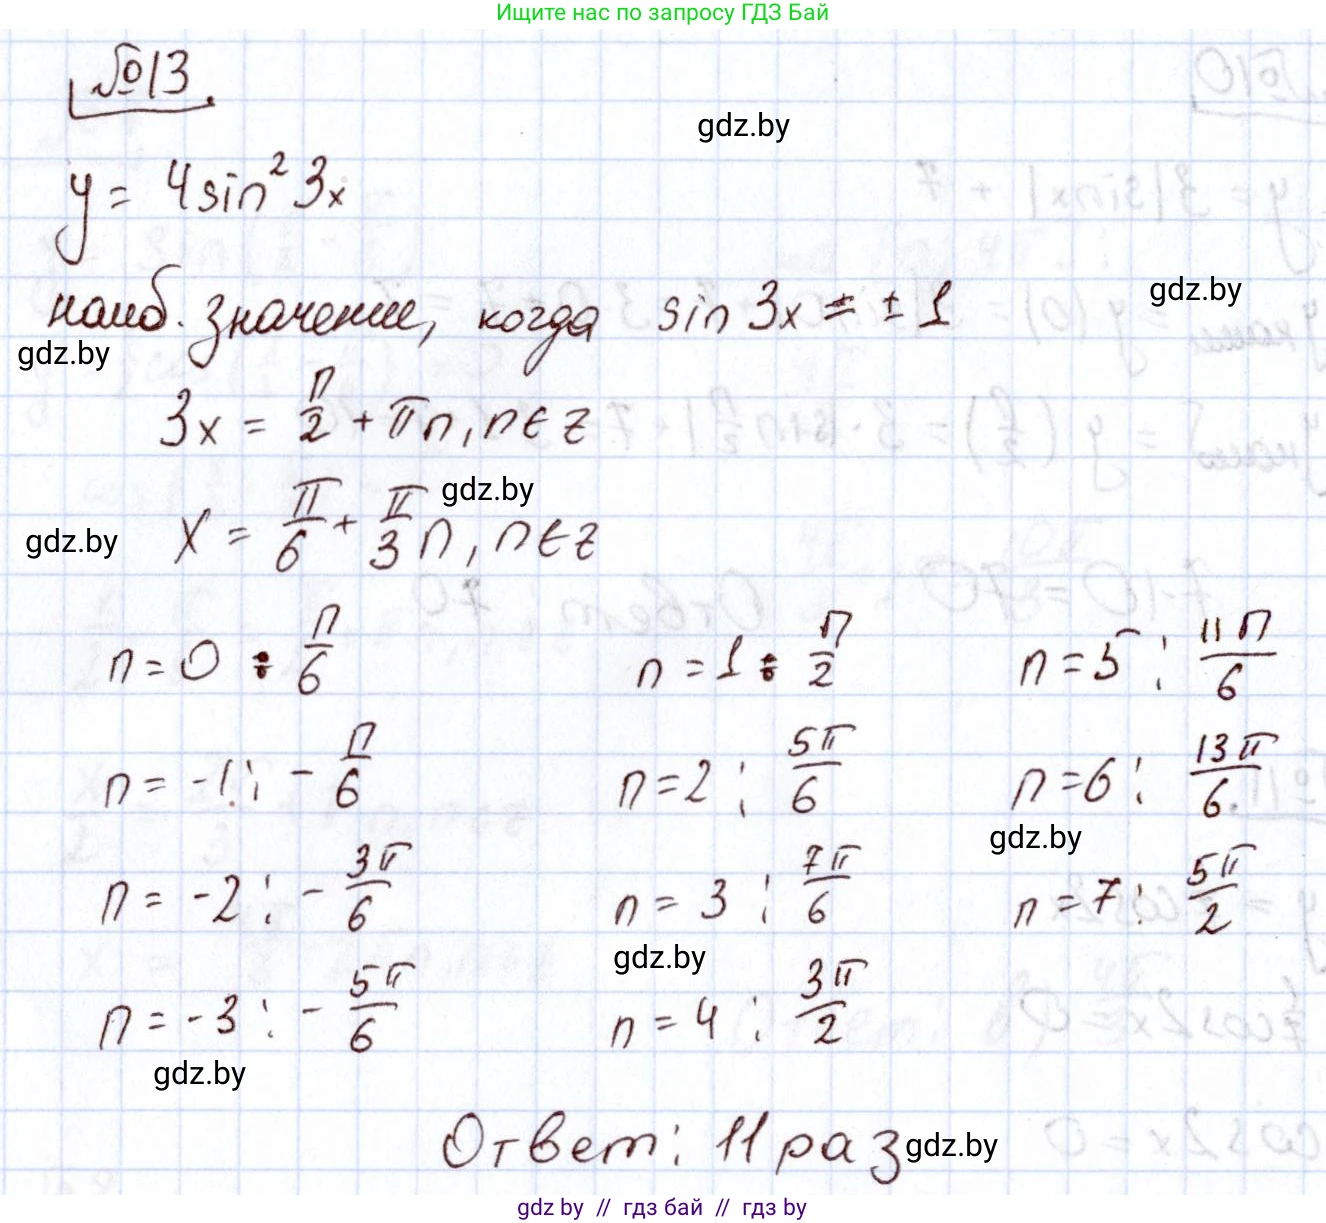 Ищите нас по запросу ГДЗ Бай
№13
gdz.by
y = 4sin² 3x
gdz.by
наиб. значение, когда sin 3x = ±1
gdz.by
3x = П/2 + πn, n∈z
gdz.by
gdz.by
x = π/6 + π/3 n, n∈z
n = 0 : П/6 n = 1 : П/2 n = 5 : 11П/6
n = -1 : - П/6 n = 2 : 5π/6 n = 6 : 13π/6
gdz.by
n = -2 : - 3π/6 n = 3 : 7π/6 n = 7 : 5π/2
gdz.by
n = -3 : - 5π/6 n = 4 : 3π/2
gdz.by
Ответ: 11 раз
gdz.by
gdz by // гдз бай // gdz by